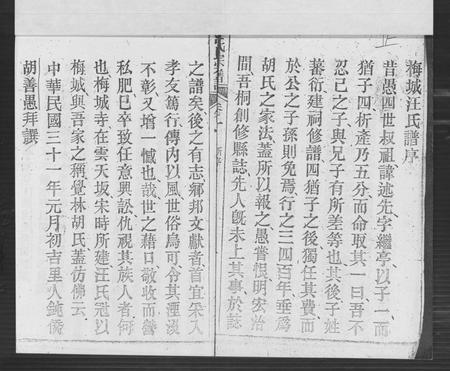 梅城汪氏譜序
昔愚四世叔祖諱述先字繼亭以子一而
猶子四析產乃五分而命取其一曰吾不
忍己之子與兄子有所差等也其後子姓
蕃衍建祠修譜四猶子之後獨任其費而
於公之子孫則免焉行之三四百年垂為
胡氏之家法蓋所以報之愚嘗恨明宏治
間吾桐創修縣誌先人既未上其事於誌
之譜矣後之有志鄉邦文獻者首宜采入
孝友篤行傳內以風世俗烏可令其湮沒
不彰又增一憾也哉世之藉口敬收而善
私肥已卒致任意興訟仇視其族人者何
也梅城寺在雲天坂宋時所建汪氏冠以
梅城與吾家之稱覺林胡氏蓋仿彿云
中華民國三十一年元月初吉里人鈍僑
胡善愚拜譔
氏宗譜